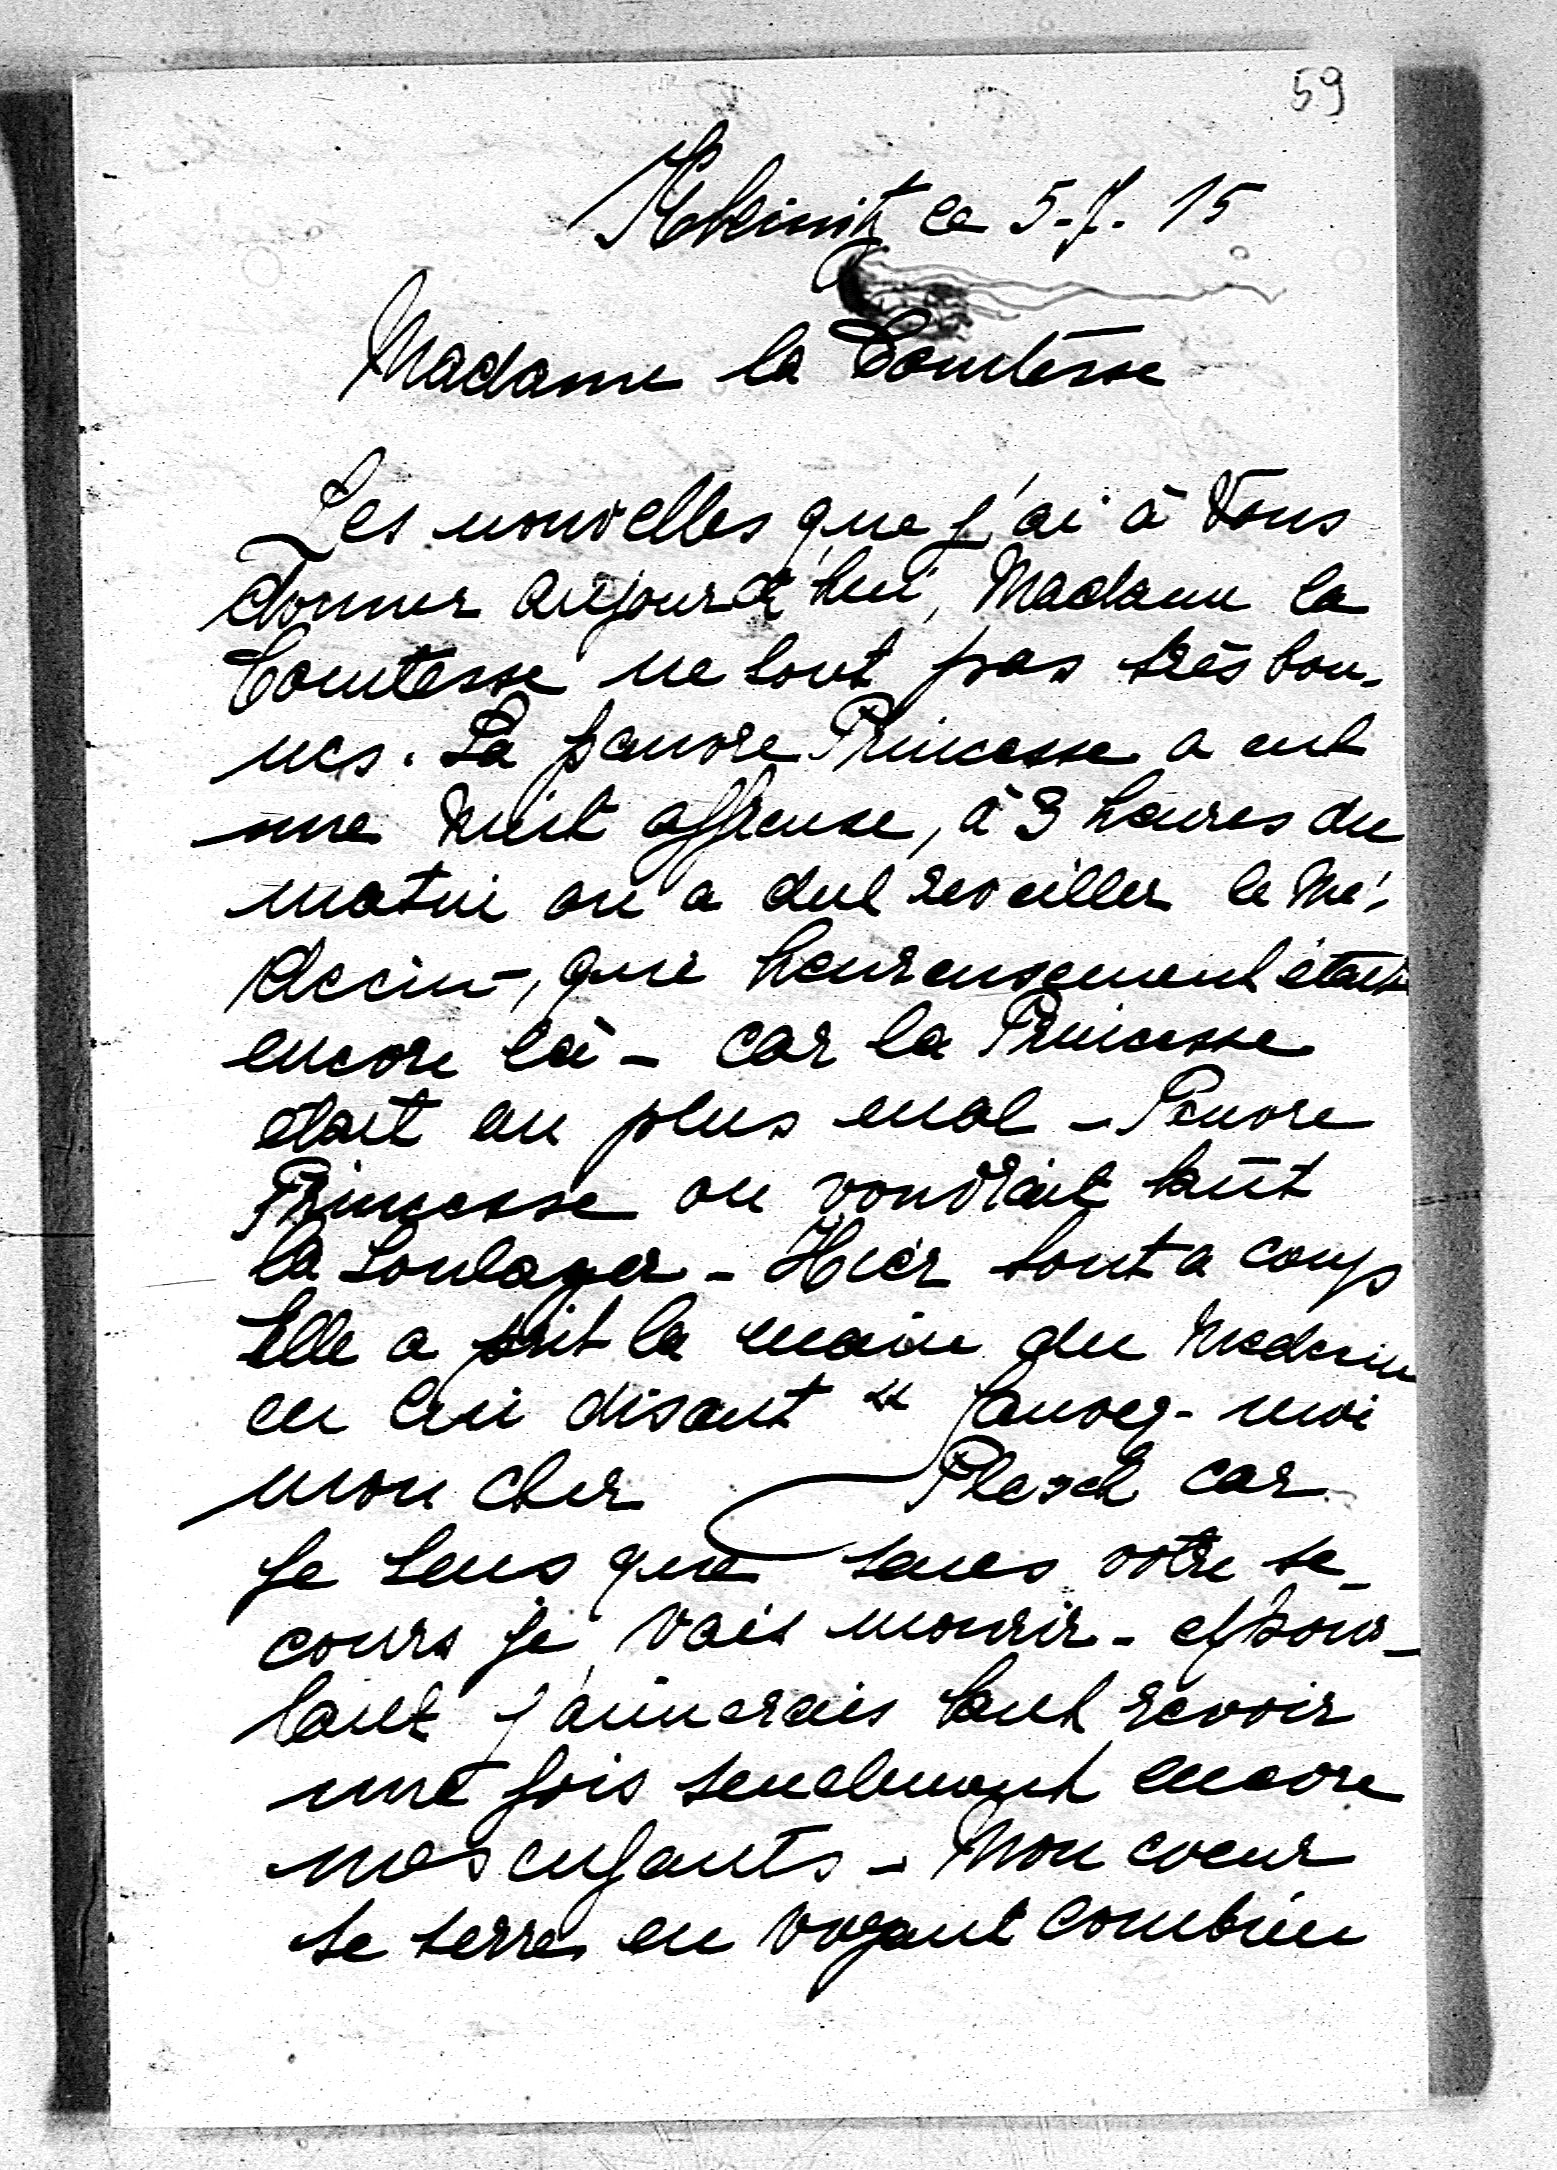 59
ce 5-7. 15
Madame la Comtesse
Les nouvelles que j'ai à Vous
donner aujourd'hui, Madame la
Comtesse ne sont pas très bon-
nes. La pauvre Princesse a eut
une Nuit affreuse, à 3 heures du
matin on a dut reveiller le Mé-
decin-, que heureusement était
encore là - car la Princesse
était au plus mal - Pauvre
Princesse on voudrait tant
la soulager - Hier tout a coup
Elle a prit la main du Medecin
en lui disant " Sauvez-moi
mon cher Plesch car
je sens que sans votre se-
cours je vais mourir - et pour-
tant j'aimerais tant revoir
une fois seulement encore
mes enfants - Mon coeur
se serre en voyant combien